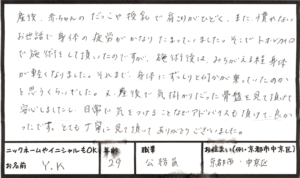 産後、赤ちゃんのだっこや授乳で肩こりがひどく、また、慣れない
お世話で身体の疲労がかなりたまっていました。そこで
施術をして頂いたのですが、施術後は、みちがえる程身体
が軽くなりました。それまで、身体にずっしりと何かが乗っていたのか
と思うくらいでした。又、産後で気掛かりだった骨盤を見て頂けて
安心しましたし、日常に気をつけることなどアドバイスも頂けて、良か
ったです。とても丁寧に見て頂いてありがとうございました。
ニックネームやイニシャルもOK
お名前 Y.K
年齢 29
職業 公務員
お住まい(例:京都市中京区)
京都市・中京区